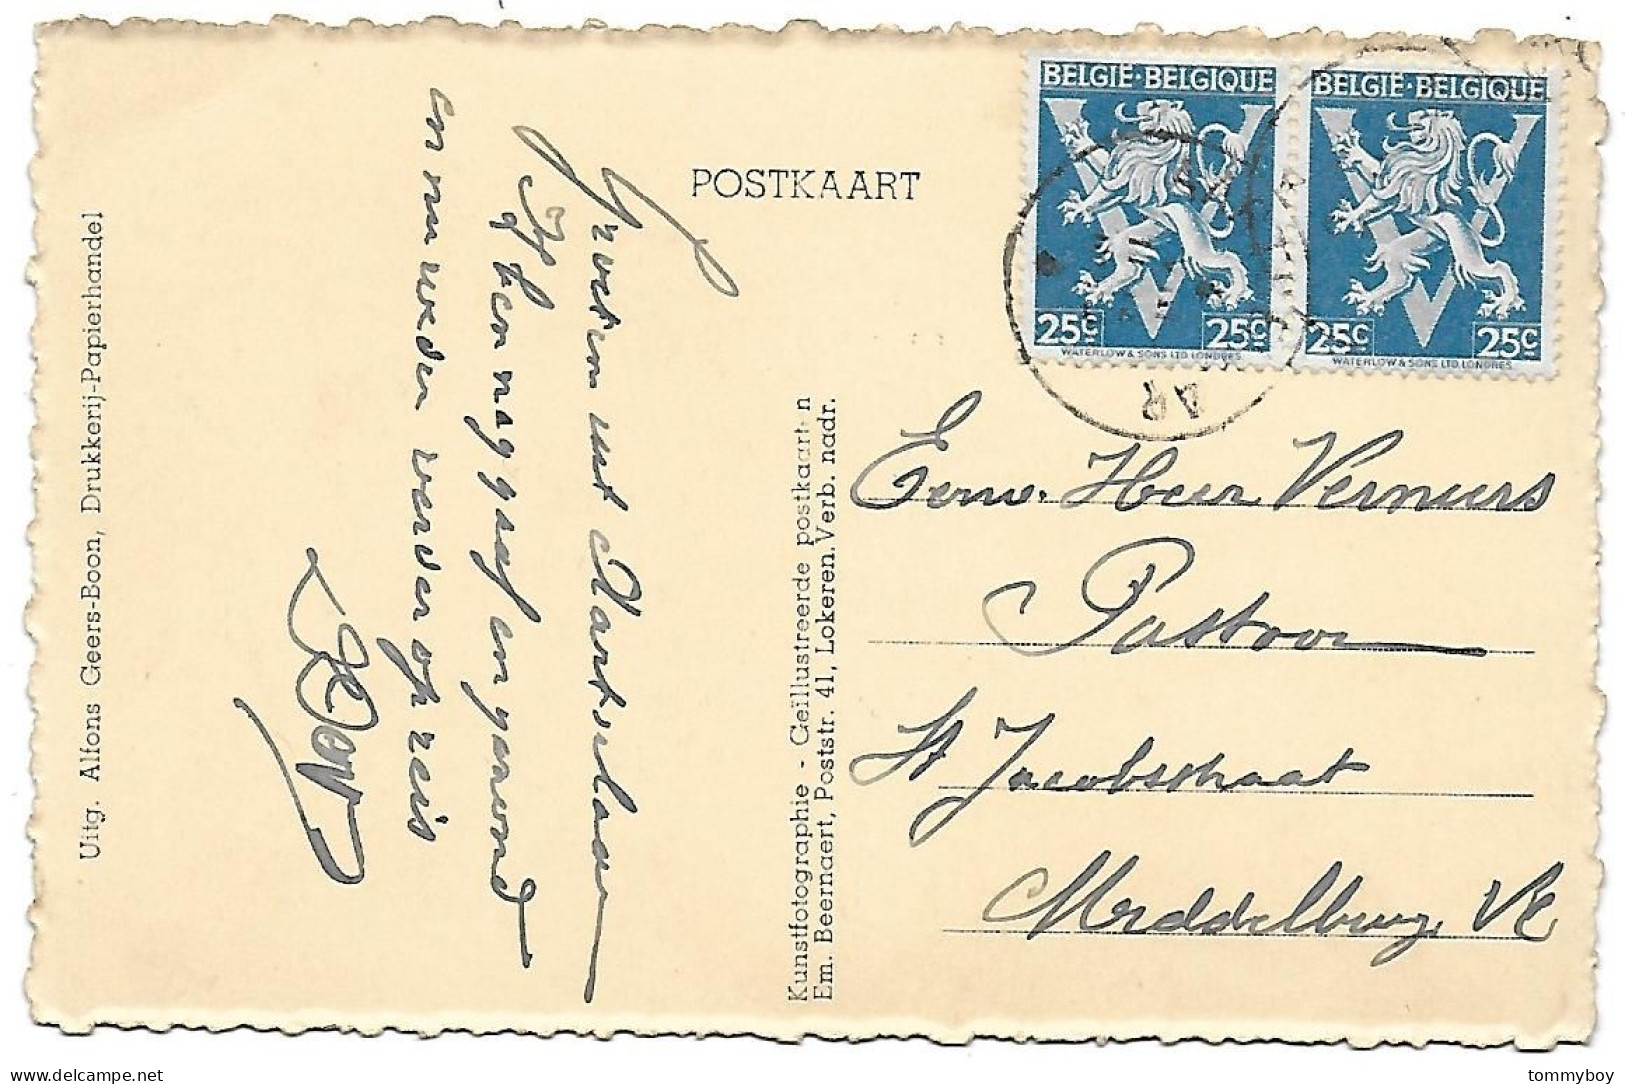 POSTKAART
BELGIË·BELGIQUE
25c 25c
WATERLOW & SONS LTD. LONDRES.
BELGIË·BELGIQUE
25c 25c
WATERLOW & SONS LTD. LONDRES.
AR
Uitg. Alfons Geers-Boon, Drukkerij-Papierhandel
Groeten uit Aartselaar
Ik ben nog gaaf en gezond
en nu weder verder op reis
Kunstfotographie - Geïllustreerde postkaart n
Em. Beernaert, Poststr. 41, Lokeren. Verb. nadr.
Eerw. Heer Verniers
Pastoor
St Jacobstraat
Middelburg Vl
tommyboy